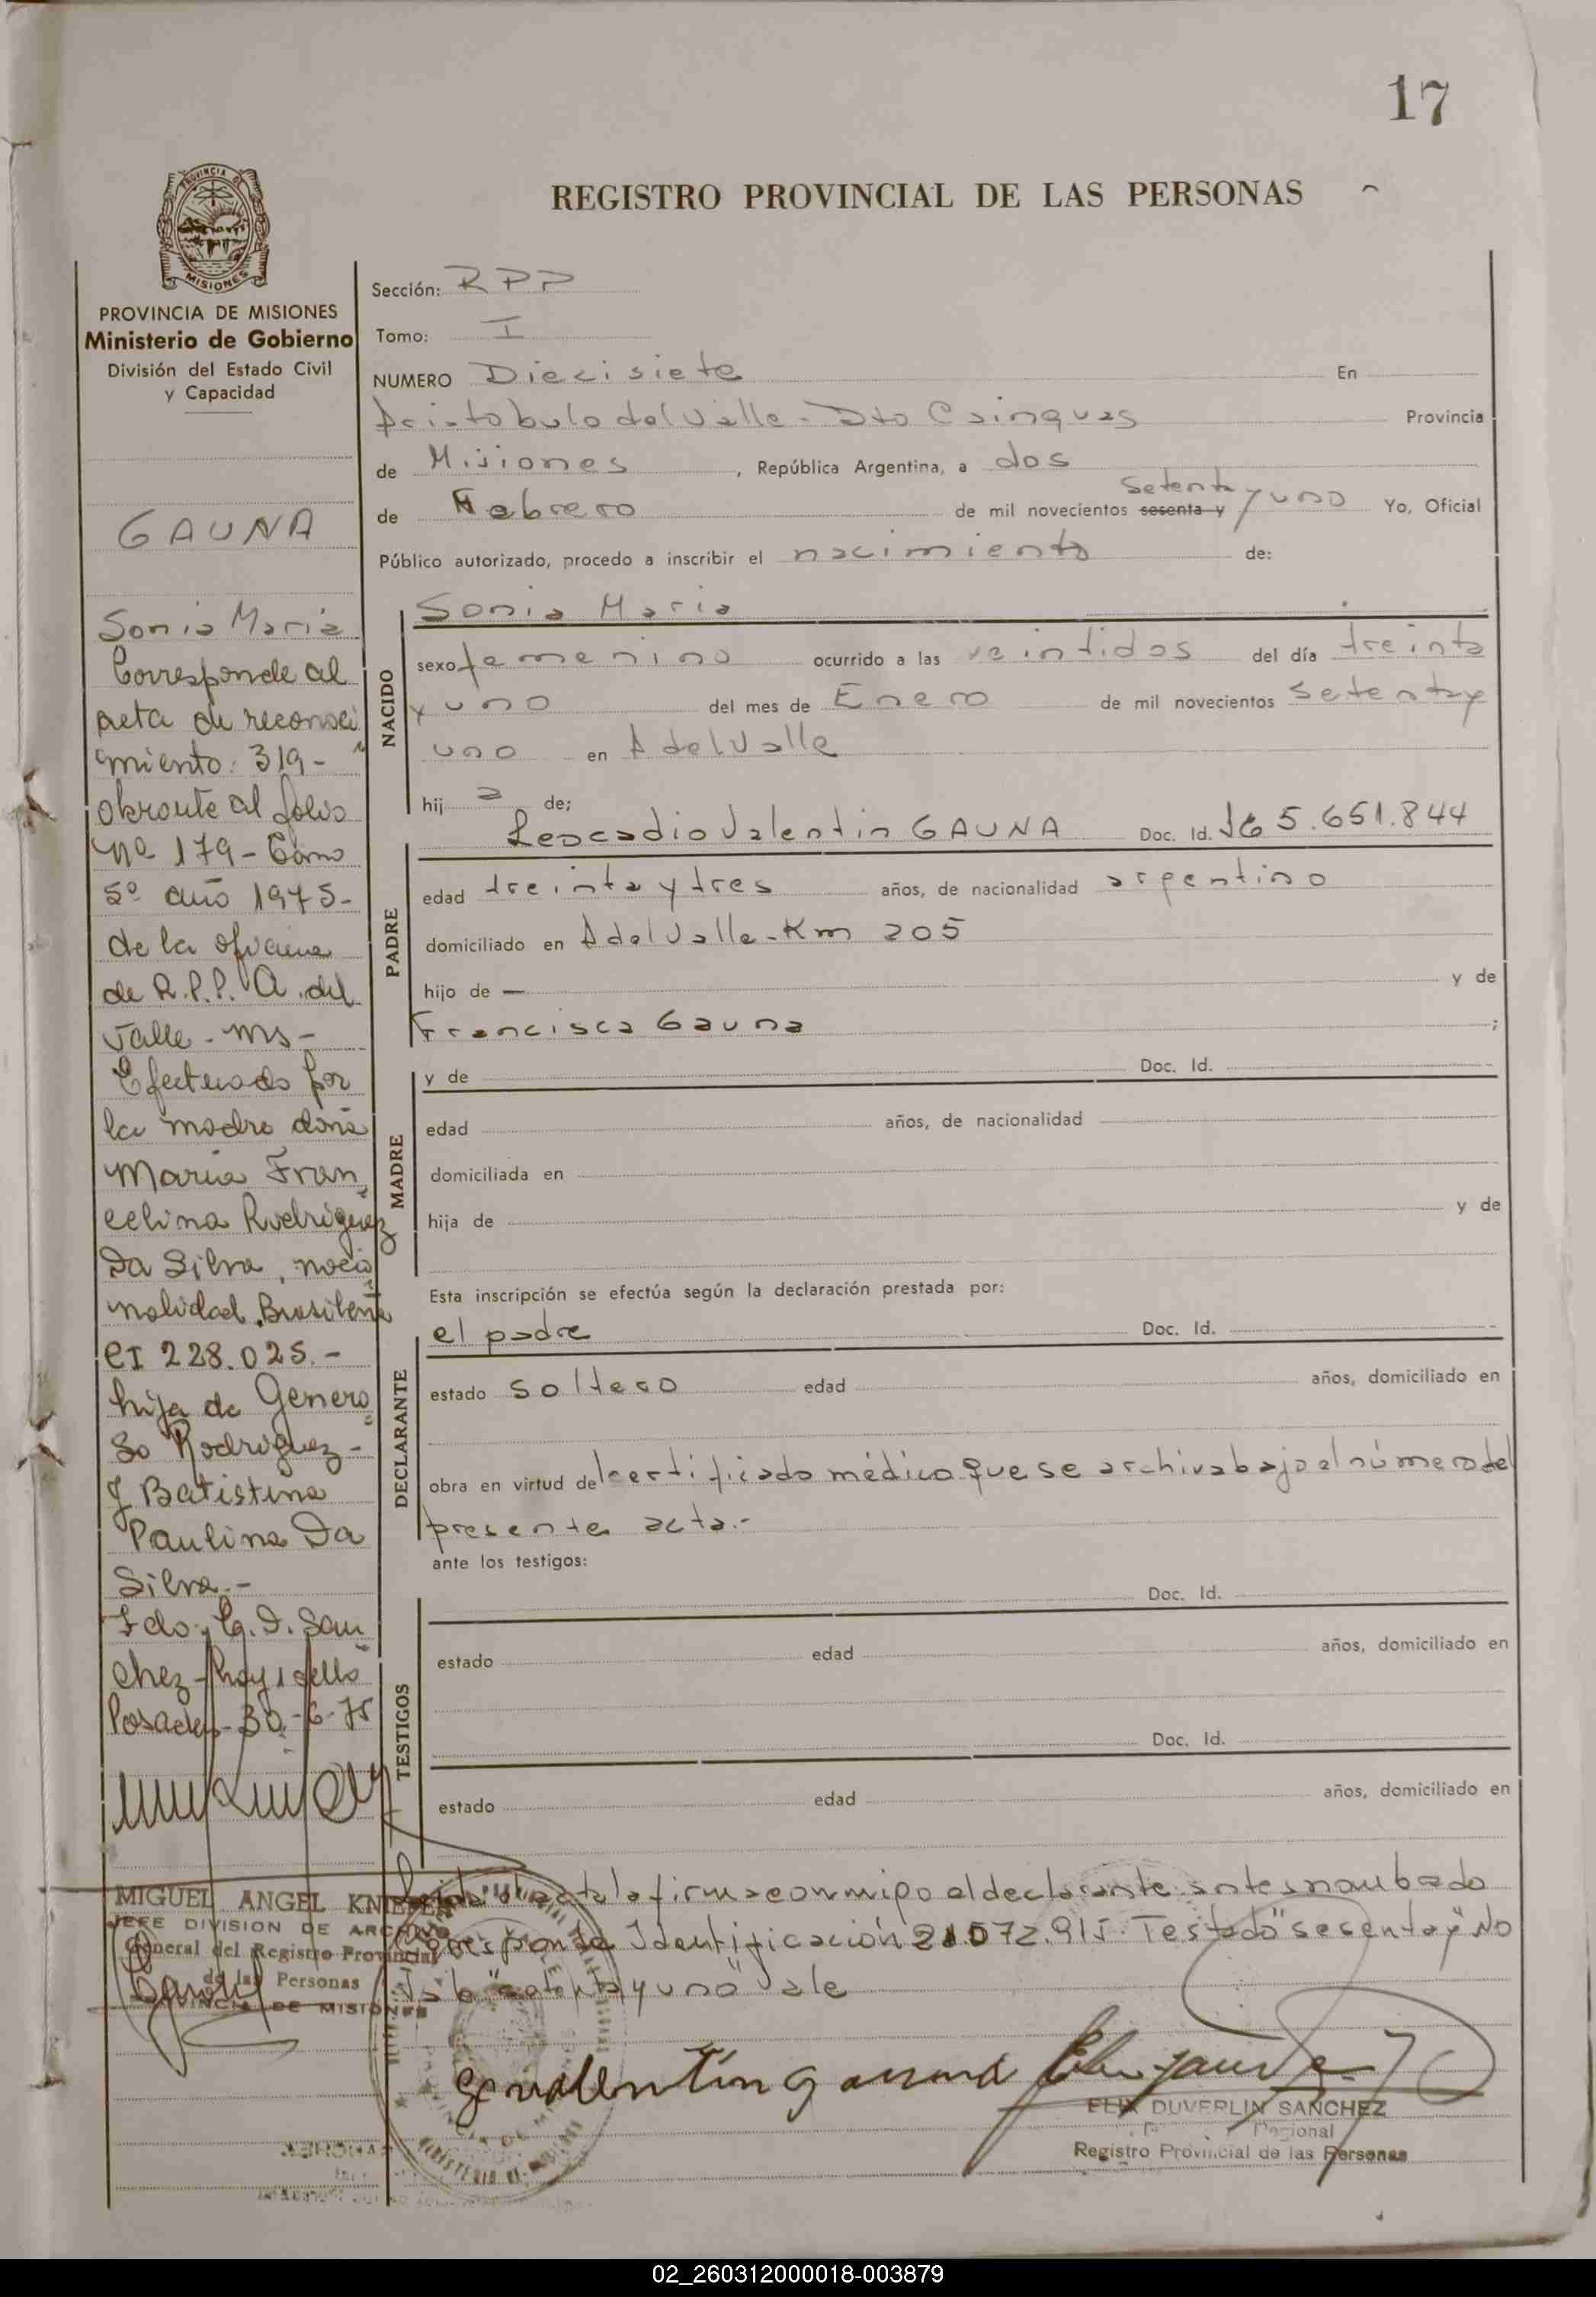 17
REGISTRO PROVINCIAL DE LAS PERSONAS
PROVINCIA DE
MISIONES
PROVINCIA DE MISIONES
Ministerio de Gobierno
División del Estado Civil
y Capacidad
GAUNA
Sonia Maria
Corresponde al
acta de reconoci
miento: 319-
obrante al folio
Nº 179- Tomo
5º año 1975-
de la oficina
de R.P.P. A. del
Valle - Ms-
Efectuado por
la madre doña
Maria Fran
celina Rodriguez
Da Silva, nacio
nalidad Brasileña
CI 228.025.-
hija de Genero
so Rodriguez-
y Batistina
Paulina Da
Silva.-
Fdo: E. D. San
chez- Hay 1 sello
Posadas- 30-6-75
MIGUEL ANGEL
JEFE DIVISION DE ARCHIVO
General del Registro Provincial
de las Personas
PROVINCIA DE MISIONES
Sección: RPP
Tomo: I
NUMERO Diecisiete En
Aristobulo del Valle - Dto Cainguas Provincia
de Misiones, República Argentina, a dos
de Febrero de mil novecientos sesenta y setenta y uno Yo, Oficial
Público autorizado, procedo a inscribir el nacimiento de:
NACIDO
Sonia Maria
sexo femenino ocurrido a las veintidos del día treinta
y uno del mes de Enero de mil novecientos setenta y
uno en A del Valle
hij a de;
PADRE
Leocadio Valentin GAUNA Doc. Id. 5.651.844
edad treinta y tres años, de nacionalidad argentino
domiciliado en A del Valle - Km 205
hijo de — y de
Francisca Gauna ;
MADRE
y de Doc. Id.
edad años, de nacionalidad
domiciliada en
hija de y de
Esta inscripción se efectúa según la declaración prestada por:
DECLARANTE
el padre Doc. Id.
estado soltero edad años, domiciliado en
obra en virtud del certificado médico que se archiva bajo el número del
presente acta.-
ante los testigos:
TESTIGOS
Doc. Id.
estado edad años, domiciliado en
Doc. Id.
estado edad años, domiciliado en
acta la firma conmigo el declarante antes nombrado
Identificación 072.915. Testado "sesenta y" No
"setenta y uno" Vale
Valentín gauna
ELIX DUVERLIN SANCHEZ
Regional
Registro Provincial de las Personas
02_260312000018-003879